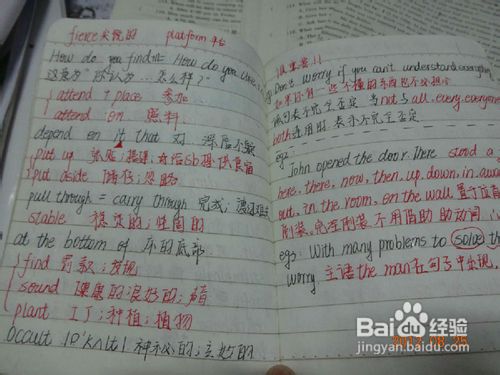 fierce 尖锐的 platform 平台
How do you find = How do you like
这意为"你认为…怎么样?"
attend 1 place 参加
attend on 照料
depend on it that 对 深信不疑
put up 张贴;搭建;为给sb提供食宿
put aside 储存;忽略
pull through = carry through 完成;渡过难关
stable 稳定的;牢固的
at the bottom of 在…的底部
find 罚款;发现
sound 健康的良好的;声音
plant 工厂;种植;植物
occult 神秘的;玄妙的
Don't worry if you can't understand everything
如果你有一些不懂的东西也不必担心
当not与all, every, everyone
both连用时 表示不完全否定
eg:
John opened the door. There stood a
here, there, now, then, up, down, in, away
out, in the room, on the wall 置于
倒装,完全倒装 不用借助助动词
eg: With many problems to solve, th
worry. 主语 the man在句子中出现,
Baidu 经验
jingyan.baidu.com